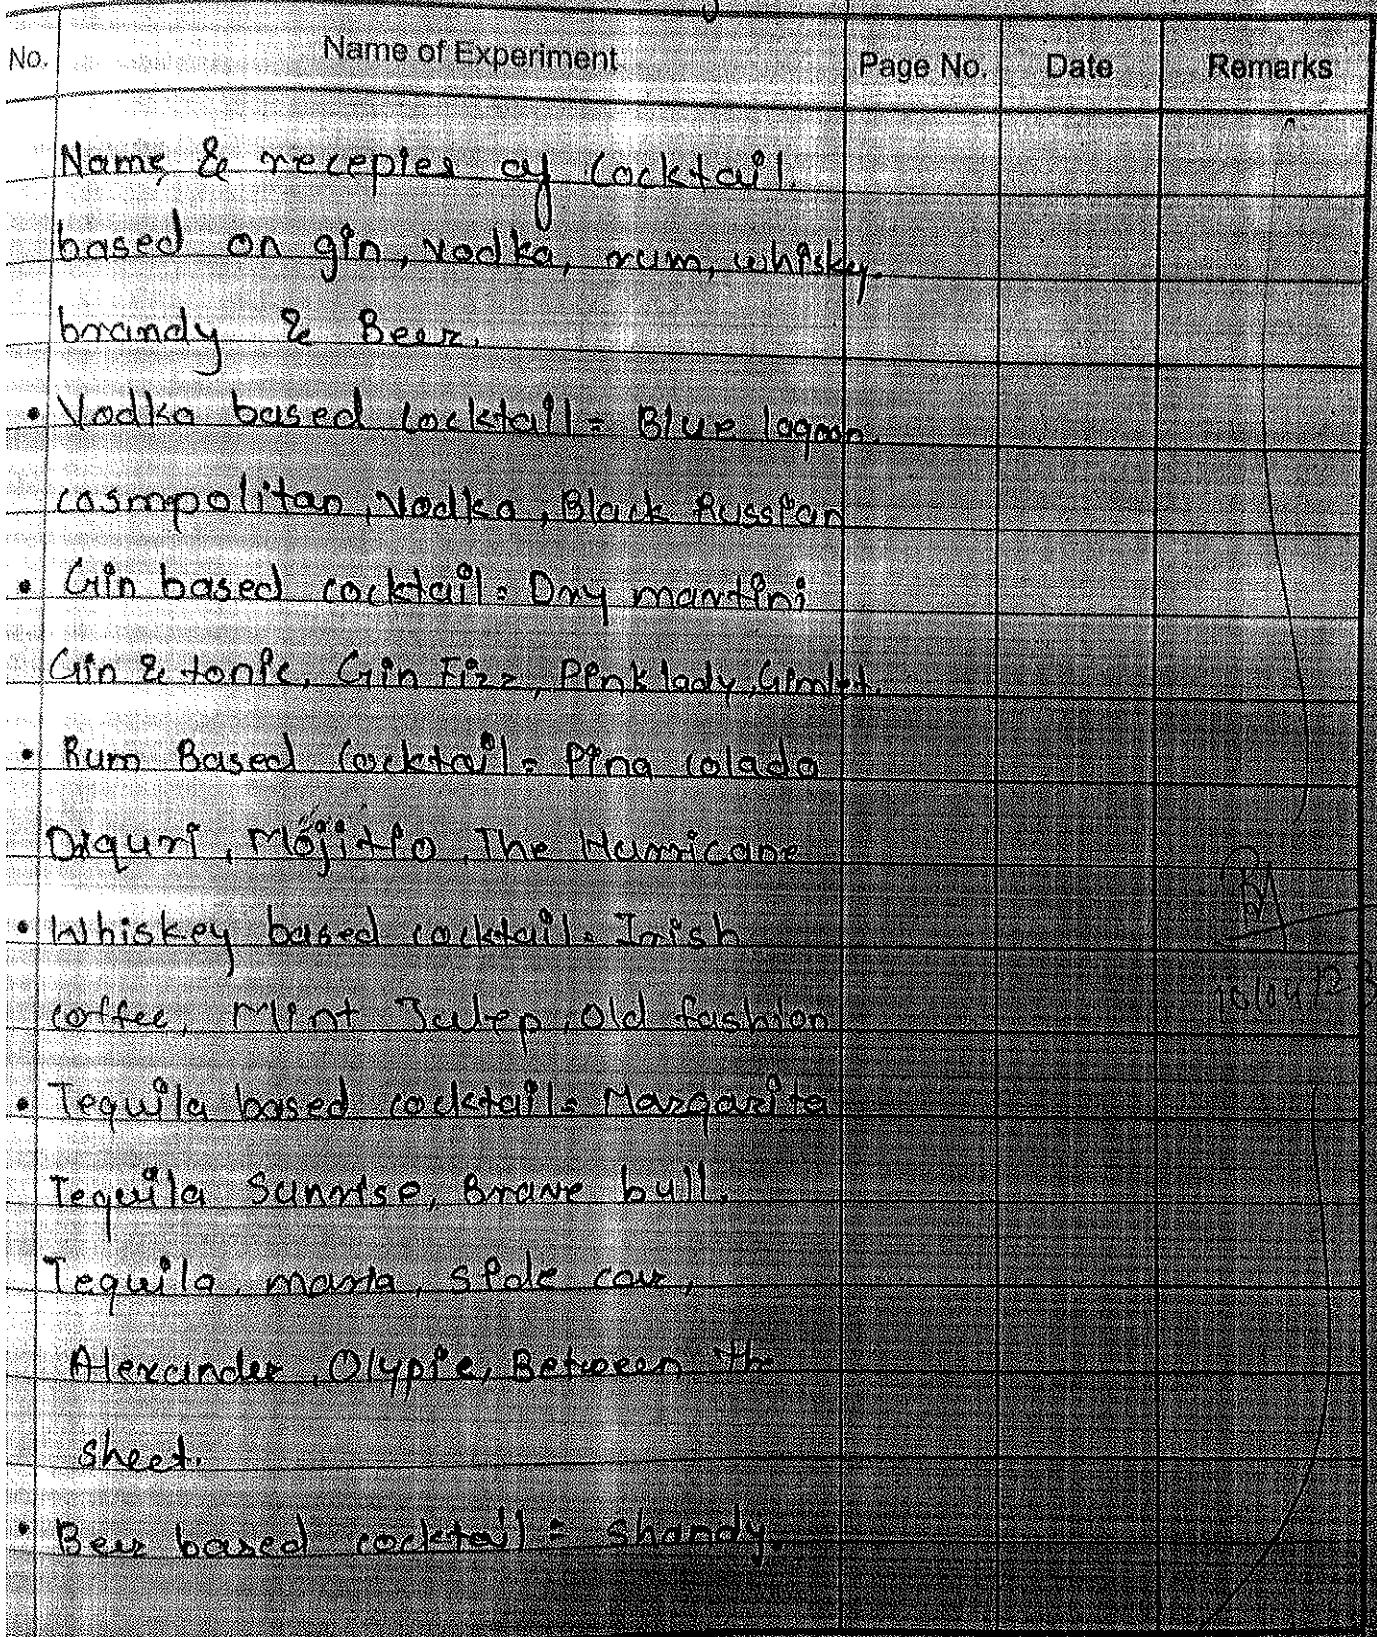 No. Name of Experiment Page No. Date Remarks
Name & recepies of Cocktail
based on gin, vodka, rum, whisky.
brandy & Beer.
• Vodka based Cocktail = Blue lagoon.
cosmpolitan, Vodka, Black Russian
• Gin based cocktail = Dry martini
Gin & tonic, Gin Fizz, Pink lady, Gimlet.
• Rum Based Cocktail = Pina colada
Diquri, Mojitio, The Hurricane
• Whiskey based cocktail = Irish
coffee, Mint Julep, Old fashion
• Tequila based cocktail = Margarita
Tequila Sunrise, Brave bull.
Tequila, maria, side car,
Alexander, Olypic, Between the
sheet.
• Beer based cocktail = shandy.